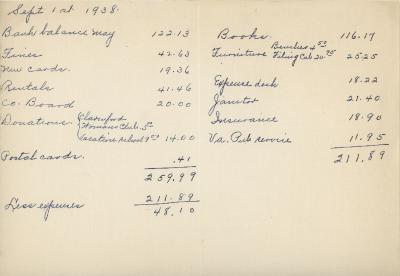 Sept 1st 1938.
Bank balance May 122.13
Fines 42.63
New cards. 19.36
Rentals 41.46
Co. Board 20.00
Donations.
Womans Club. 5.00
Vacation school 9.00 14.00
Postal cards. .41
259.99
Less expenses 211.89
48.10
Books. 116.17
Benches 4.50
Furniture Filing Cab 20.75 25.25
Expense desk 18.22
Janitor 21.40
Insurance 18.90
Va. Pub. 11.95
211.89